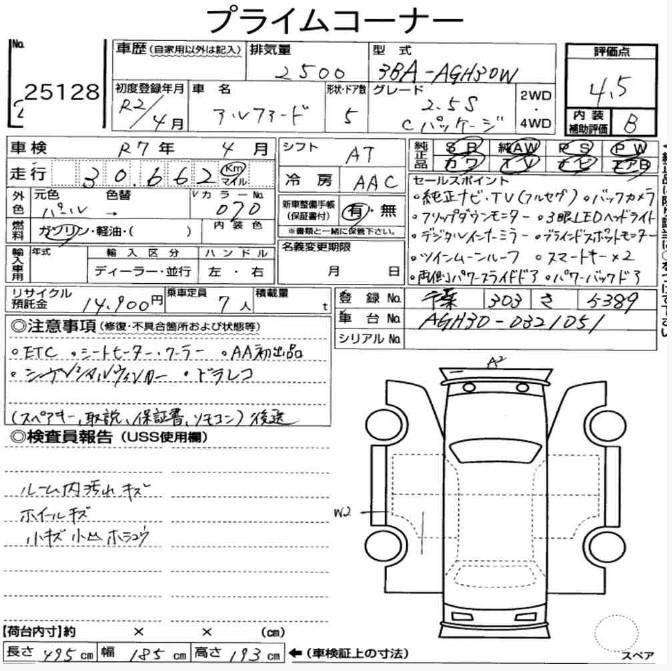 プライムコーナー
No.
25128
車歴 (自家用以外は記入)
排気量 2500
型式 3BA-AGH30W
評価点 4.5
初度登録年月 R2/4月
車名 アルファード
形状・ドア数 5
グレード 2.5S Cパッケージ
2WD・4WD
内装補助評価 B
車検 R7年 4月
シフト AT
純正品 SR 純AW PS PW
カワ TV ナビ エアB
走行 30,662 Km マイル
冷房 AAC
外色 元色 パール 色替 → Vカラー No. 070
燃料 ガソリン・軽油・( ) 内装色
新車整備手帳(保証書付) 有・無
※書類と一緒に保管下さい。
セールスポイント
◦純正ナビ・TV(フルセグ) ◦バックカメラ
◦フリップダウンモニター ◦3眼LEDヘッドライト
◦デジタルインナーミラー ◦ブラインドスポットモニター
◦ツインムーンルーフ ◦スマートキー×2
◦両側パワースライドドア ◦パワーバックドア
輸入車用 年式 輸入区分 ハンドル
ディーラー・並行 左・右
名義変更期限 月 日
リサイクル預託金 14,900円
乗車定員 7人
積載量 t
登録No. 千葉 303 さ 5389
車台No. AGH30-0321051
シリアルNo.
◎注意事項 (修復・不具合箇所および状態等)
◦ETC ◦シートヒーター・クーラー ◦AA初出品
◦シーケンシャルウィンカー ◦ドラレコ
(スペアキー、取説、保証書、リモコン)後送
◎検査員報告 (USS使用欄)
ルーム内汚れキズ
ホイールキズ
小キズ小凹
A2
W2
【荷台内寸】約 × × (cm)
長さ 495cm 幅 185cm 高さ 193cm ←(車検証上の寸法)
スペア